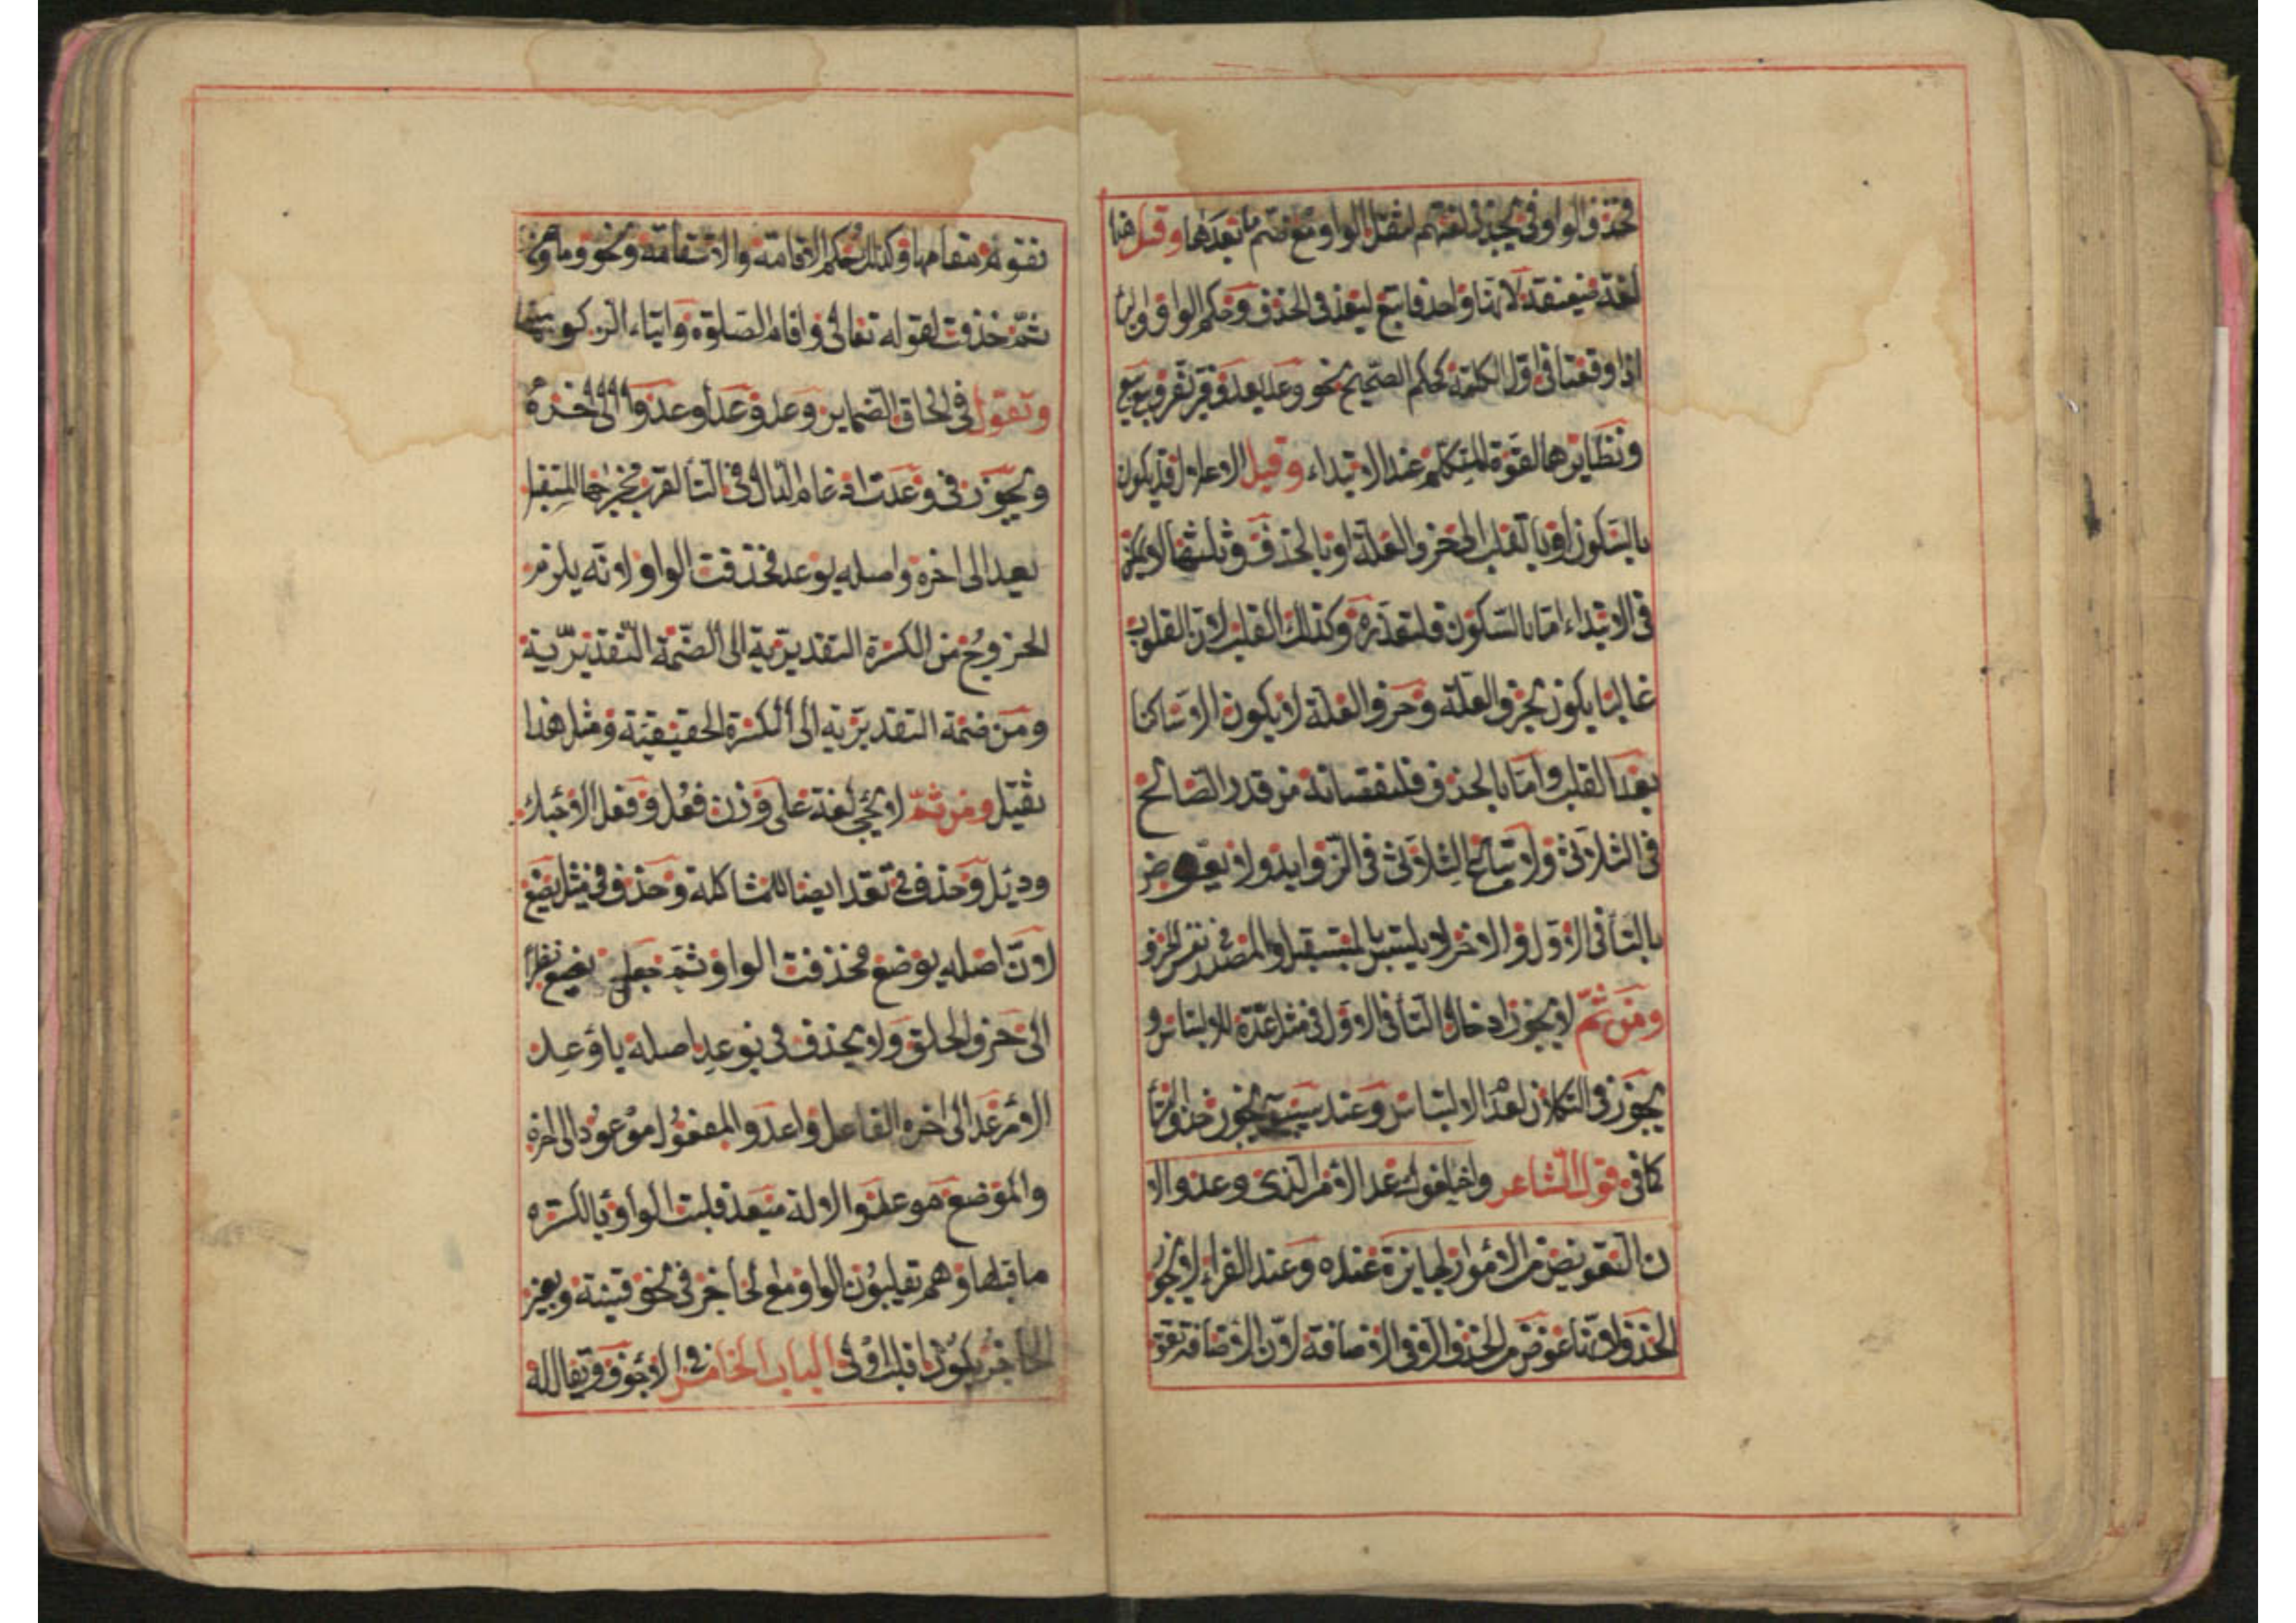 فحذف الواو في يجد في لغتهم لثقل الواو مع ضم ما بعدها وقيل هذا
لغة ضعيفة لانها واحد فاتبع ليعد في الحذف وحكم الواو والياء
اذا وقعتا في اول الكلمة كحكم الصحيح نحو وعد يعد وقر يقر ويع يع
ونظايرهما لقوة المتكلم عند الابتداء وقيل الاعلال قد يكون
بالسكون او بالقلب الى حرف العلة او بالحذف وثلثتها لا يمكن
في الابتداء اما بالسكون فلتعذره وكذلك القلب لان المقلوب به
غالبا يكون بحرف العلة وحرف العلة لا يكون الا ساكنا
بعد القلب واما بالحذف فلنقصانه من قدر الصالح
في الثلاثي ولا تباع الثلاثي في الزوايد ولا يعوض
بالتا في الاول والاخر لا يلتبس بالمستقبل والمصدر نفس الحرف
ومن ثم لا يجوز ادخال التا في الاول في مثل عدة للالتباس و
يجوز في التكلان لعد الالتباس وعند سيبويه يجوز حذف التا
كما في قول الشاعر واخلفوك عد الامر الذي وعدوا لا
ن التعويض من الامور الجايزة عنده وعند الفراء لا يجوز
الحذف لانها عوض من الحذف الا في الاضافة لان الاضافة تقو
تقوم مقامها وكذلك حكم الاقامة والاستقامة ونحوهما ومن
ثم حذفت لقوله تعالى واقام الصلوة وايتاء الزكوة
وتقول في الحاق الضماير وعد وعدا وعدوا الى اخره
ويجوز في وعدت ادغام الدال في التا لقرب مخرجهما المستقبل
يعد الى اخره واصله يوعد فحذفت الواو لانه يلزم
الخروج من الكسرة التقديرية الى الضمة التقديرية
ومن ضمة التقديرية الى الكسرة الحقيقية ومثل هذا
ثقيل ومن ثم لا يجي لغة على وزن فعل وفعل الا حبك
ودئل وحذف في تعد ايضا للمشاكلة وحذف في مثل يضع
لان اصله يوضع فحذفت الواو ثم جعل يضع نظرا
الى حرف الحلق ولا يحذف في يوعد اصله ياوعد
الامر عد الى اخره الفاعل واعد والمفعول موعود الى اخره
والموضع موعد والالة ميعد قلبت الواو يا لكسره
ما قبلها وهم تقلبون الواو مع الحاجز في نحو قنية وبغير
الحاجز يكون اقلب اولى الباب الخامس في الاجوف ويقال له